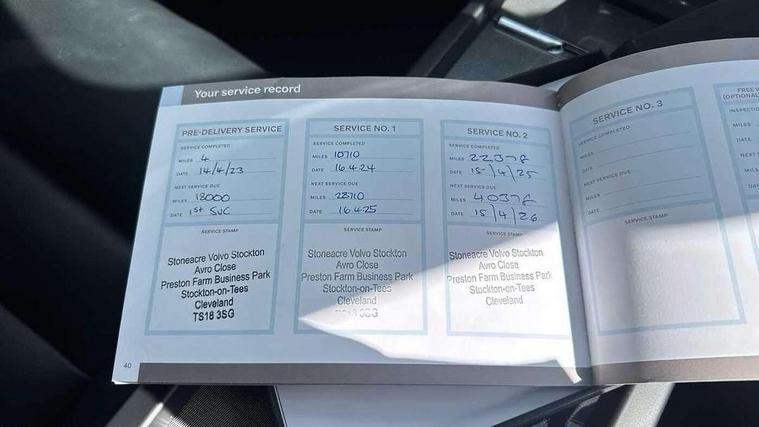 Your service record
PRE-DELIVERY SERVICE
SERVICE COMPLETED
MILES 4
DATE 14/4/23
NEXT SERVICE DUE
MILES 18000
DATE 1st SVC
SERVICE STAMP
Stoneacre Volvo Stockton
Avro Close
Preston Farm Business Park
Stockton-on-Tees
Cleveland
TS18 3SG
SERVICE NO. 1
SERVICE COMPLETED
MILES 10710
DATE 16.4.24
NEXT SERVICE DUE
MILES 28710
DATE 16.4.25
SERVICE STAMP
Stoneacre Volvo Stockton
Avro Close
Preston Farm Business Park
Stockton-on-Tees
Cleveland
TS18 3SG
SERVICE NO. 2
SERVICE COMPLETED
MILES 22378
DATE 15/4/25
NEXT SERVICE DUE
MILES 40378
DATE 15/4/26
SERVICE STAMP
Stoneacre Volvo Stockton
Avro Close
Preston Farm Business Park
Stockton-on-Tees
Cleveland
40
SERVICE NO. 3
SERVICE COMPLETED
MILES
DATE
NEXT SERVICE DUE
MILES
DATE
SERVICE STAMP
FREE
(OPTIONAL
MILES
DATE
NEXT
MILES
DATE